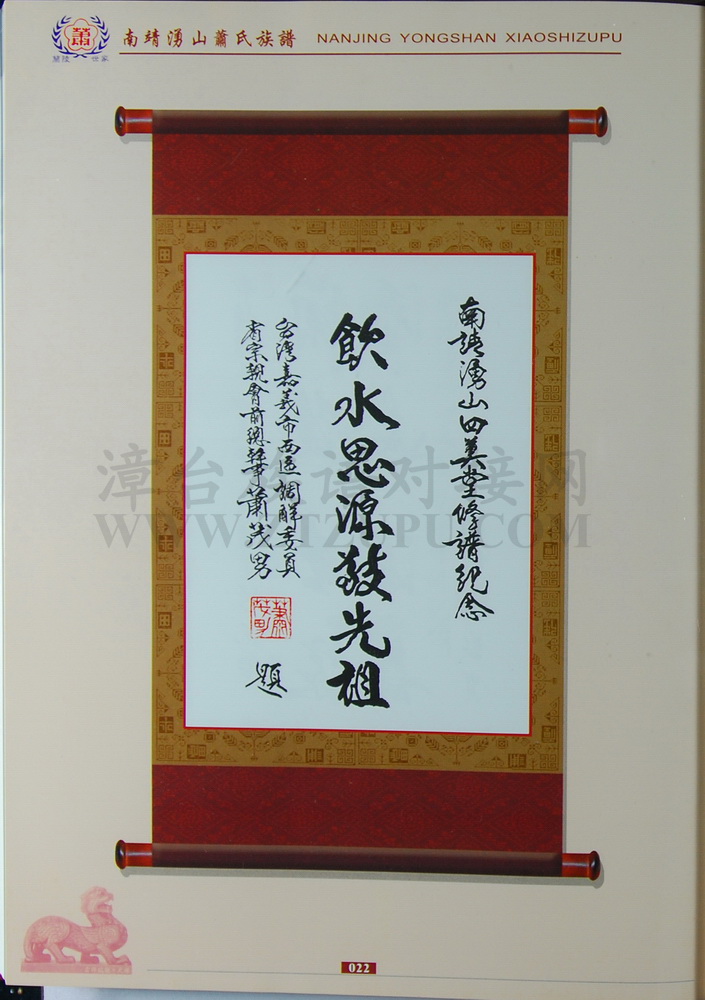 南靖湧山蕭氏族譜 NANJING YONGSHAN XIAOSHIZUPU
蘭陵 世家
南靖湧山四美堂修譜紀念
飲水思源敬先祖
台灣嘉義市西區調解委員
省宗親會前總幹事蕭茂男
蕭茂男
題
漳台族谱对接网
WWW.ZTZUPU.COM
022